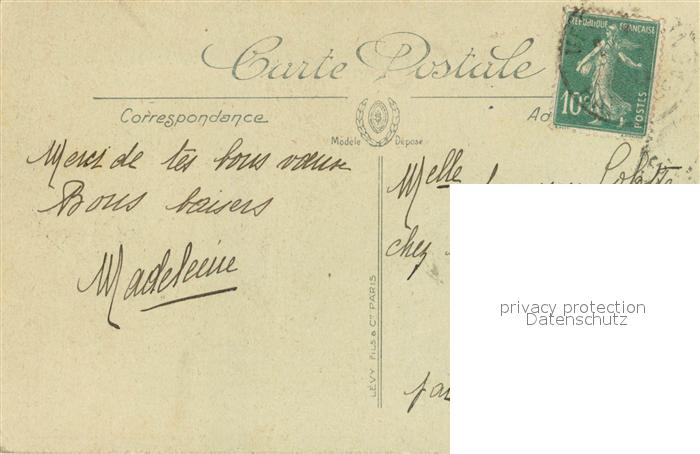 RÉPUBLIQUE FRANÇAISE
10c
POSTES
Carte Postale
Correspondance
Modèle Déposé
Merci de tes bons vœux
Bons baisers
Madeleine
LÉVY FILS & Cie PARIS
Melle
chez
privacy protection
Datenschutz